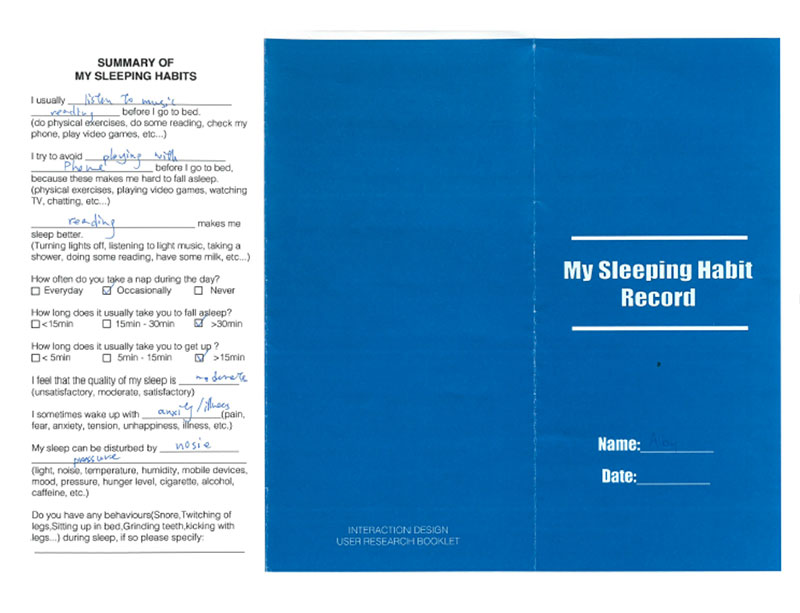 SUMMARY OF
MY SLEEPING HABITS
I usually listen to music
reading before I go to bed.
(do physical exercises, do some reading, check my
phone, play video games, etc...)
I try to avoid playing with
Phone before I go to bed,
because these makes me hard to fall asleep.
(physical exercises, playing video games, watching
TV, chatting, etc...)
reading makes me
sleep better.
(Turning lights off, listening to light music, taking a
shower, doing some reading, have some milk, etc...)
How often do you take a nap during the day?
Everyday Occasionally Never
How long does it usually take you to fall asleep?
<15min 15min - 30min >30min
How long does it usually take you to get up ?
< 5min 5min - 15min >15min
I feel that the quality of my sleep is moderate
(unsatisfactory, moderate, satisfactory)
I sometimes wake up with anxity/illness (pain,
fear, anxiety, tension, unhappiness, illness, etc.)
My sleep can be disturbed by nosie
pressure
(light, noise, temperature, humidity, mobile devices,
mood, pressure, hunger level, cigarette, alcohol,
caffeine, etc.)
Do you have any behaviours(Snore,Twitching of
legs,Sitting up in bed,Grinding teeth,kicking with
legs...) during sleep, if so please specify:
INTERACTION DESIGN
USER RESEARCH BOOKLET
My Sleeping Habit
Record
Name:
Date: